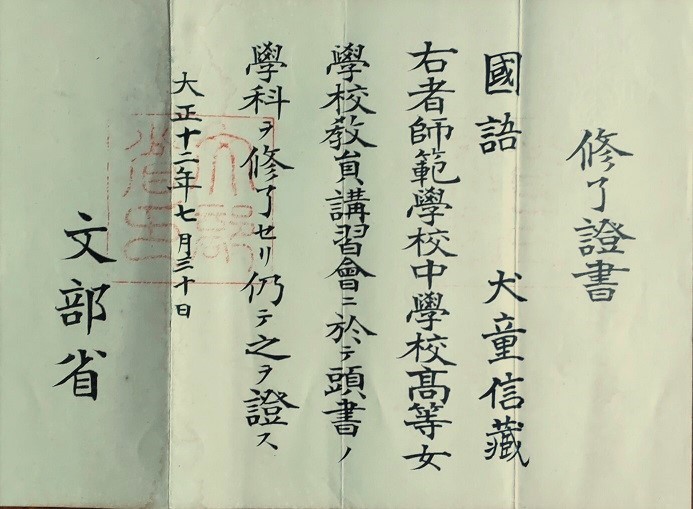 修了證書
國語 犬童信藏
右者師範學校中學校髙等女
學校敎員講習會ニ於テ頭書ノ
學科ヲ修了セリ仍テ之ヲ證ス
大正十二年七月三十日
文部省
文部省印